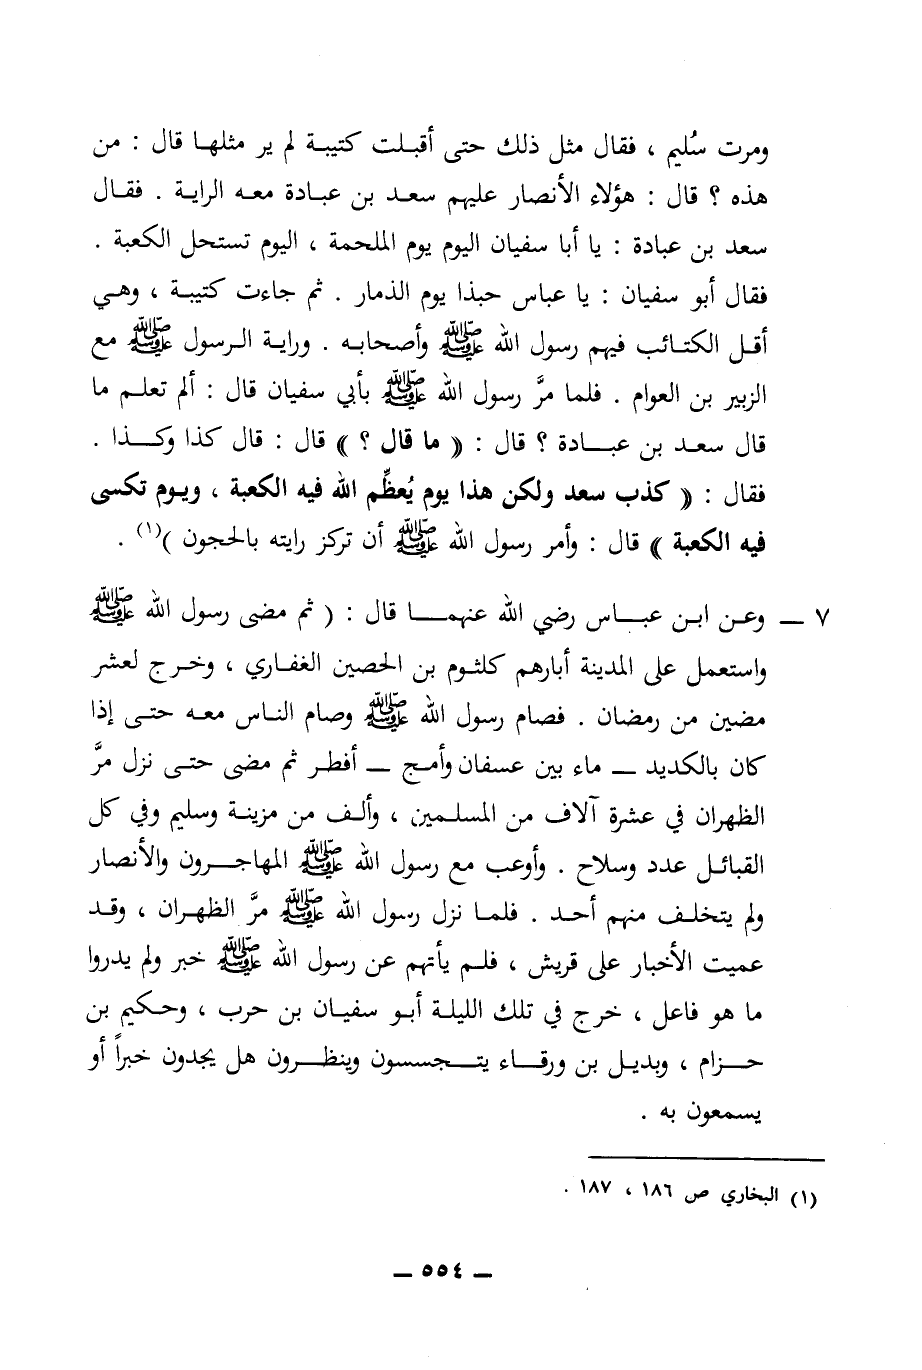 ومرت سُليم ، فقال مثل ذلك حتى أقبلت كتيبة لم ير مثلها قال : من
هذه ؟ قال : هؤلاء الأنصار عليهم سعد بن عبادة معه الراية . فقال
سعد بن عبادة : يا أبا سفيان اليوم يوم الملحمة ، اليوم تستحل الكعبة .
فقال أبو سفيان : يا عباس حبذا يوم الذمار . ثم جاءت كتيبة ، وهي
أقل الكتائب فيهم رسول الله ﷺ وأصحابه . وراية الرسول ﷺ مع
الزبير بن العوام . فلما مرَّ رسول الله ﷺ بأبي سفيان قال : ألم تعلم ما
قال سعد بن عبادة ؟ قال : « ما قال ؟ » قال : قال كذا وكذا .
فقال : « كذب سعد ولكن هذا يوم يُعظِّم الله فيه الكعبة ، ويوم تكسى
فيه الكعبة » قال : وأمر رسول الله ﷺ أن تركز رايته بالحجون )(١) .
٧ ــ وعن ابن عباس رضي الله عنهما قال : ( ثم مضى رسول الله ﷺ
واستعمل على المدينة أبارهم كلثوم بن الحصين الغفاري ، وخرج لعشر
مضين من رمضان . فصام رسول الله ﷺ وصام الناس معه حتى إذا
كان بالكديد ــ ماء بين عسفان وأمج ــ أفطر ثم مضى حتى نزل مرَّ
الظهران في عشرة آلاف من المسلمين ، وألف من مزينة وسليم وفي كل
القبائل عدد وسلاح . وأوعب مع رسول الله ﷺ المهاجرون والأنصار
ولم يتخلف منهم أحد . فلما نزل رسول الله ﷺ مرَّ الظهران ، وقد
عميت الأخبار على قريش ، فلم يأتهم عن رسول الله ﷺ خبر ولم يدروا
ما هو فاعل ، خرج في تلك الليلة أبو سفيان بن حرب ، وحكيم بن
حزام ، وبديل بن ورقاء يتجسسون وينظرون هل يجدون خبراً أو
يسمعون به .
(١) البخاري ص ١٨٦ ، ١٨٧ .
ــ ٥٥٤ ــ